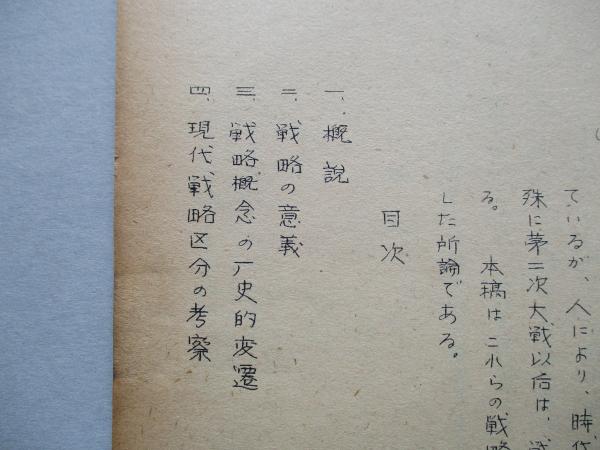 ているが、人により、時代
殊に第二次大戦以后は、
る。 本稿はこれらの戦略
した所論である。
目次
一、概説
二、戦略の意義
三、戦略概念の厂史的変遷
四、現代戦略区分の考察